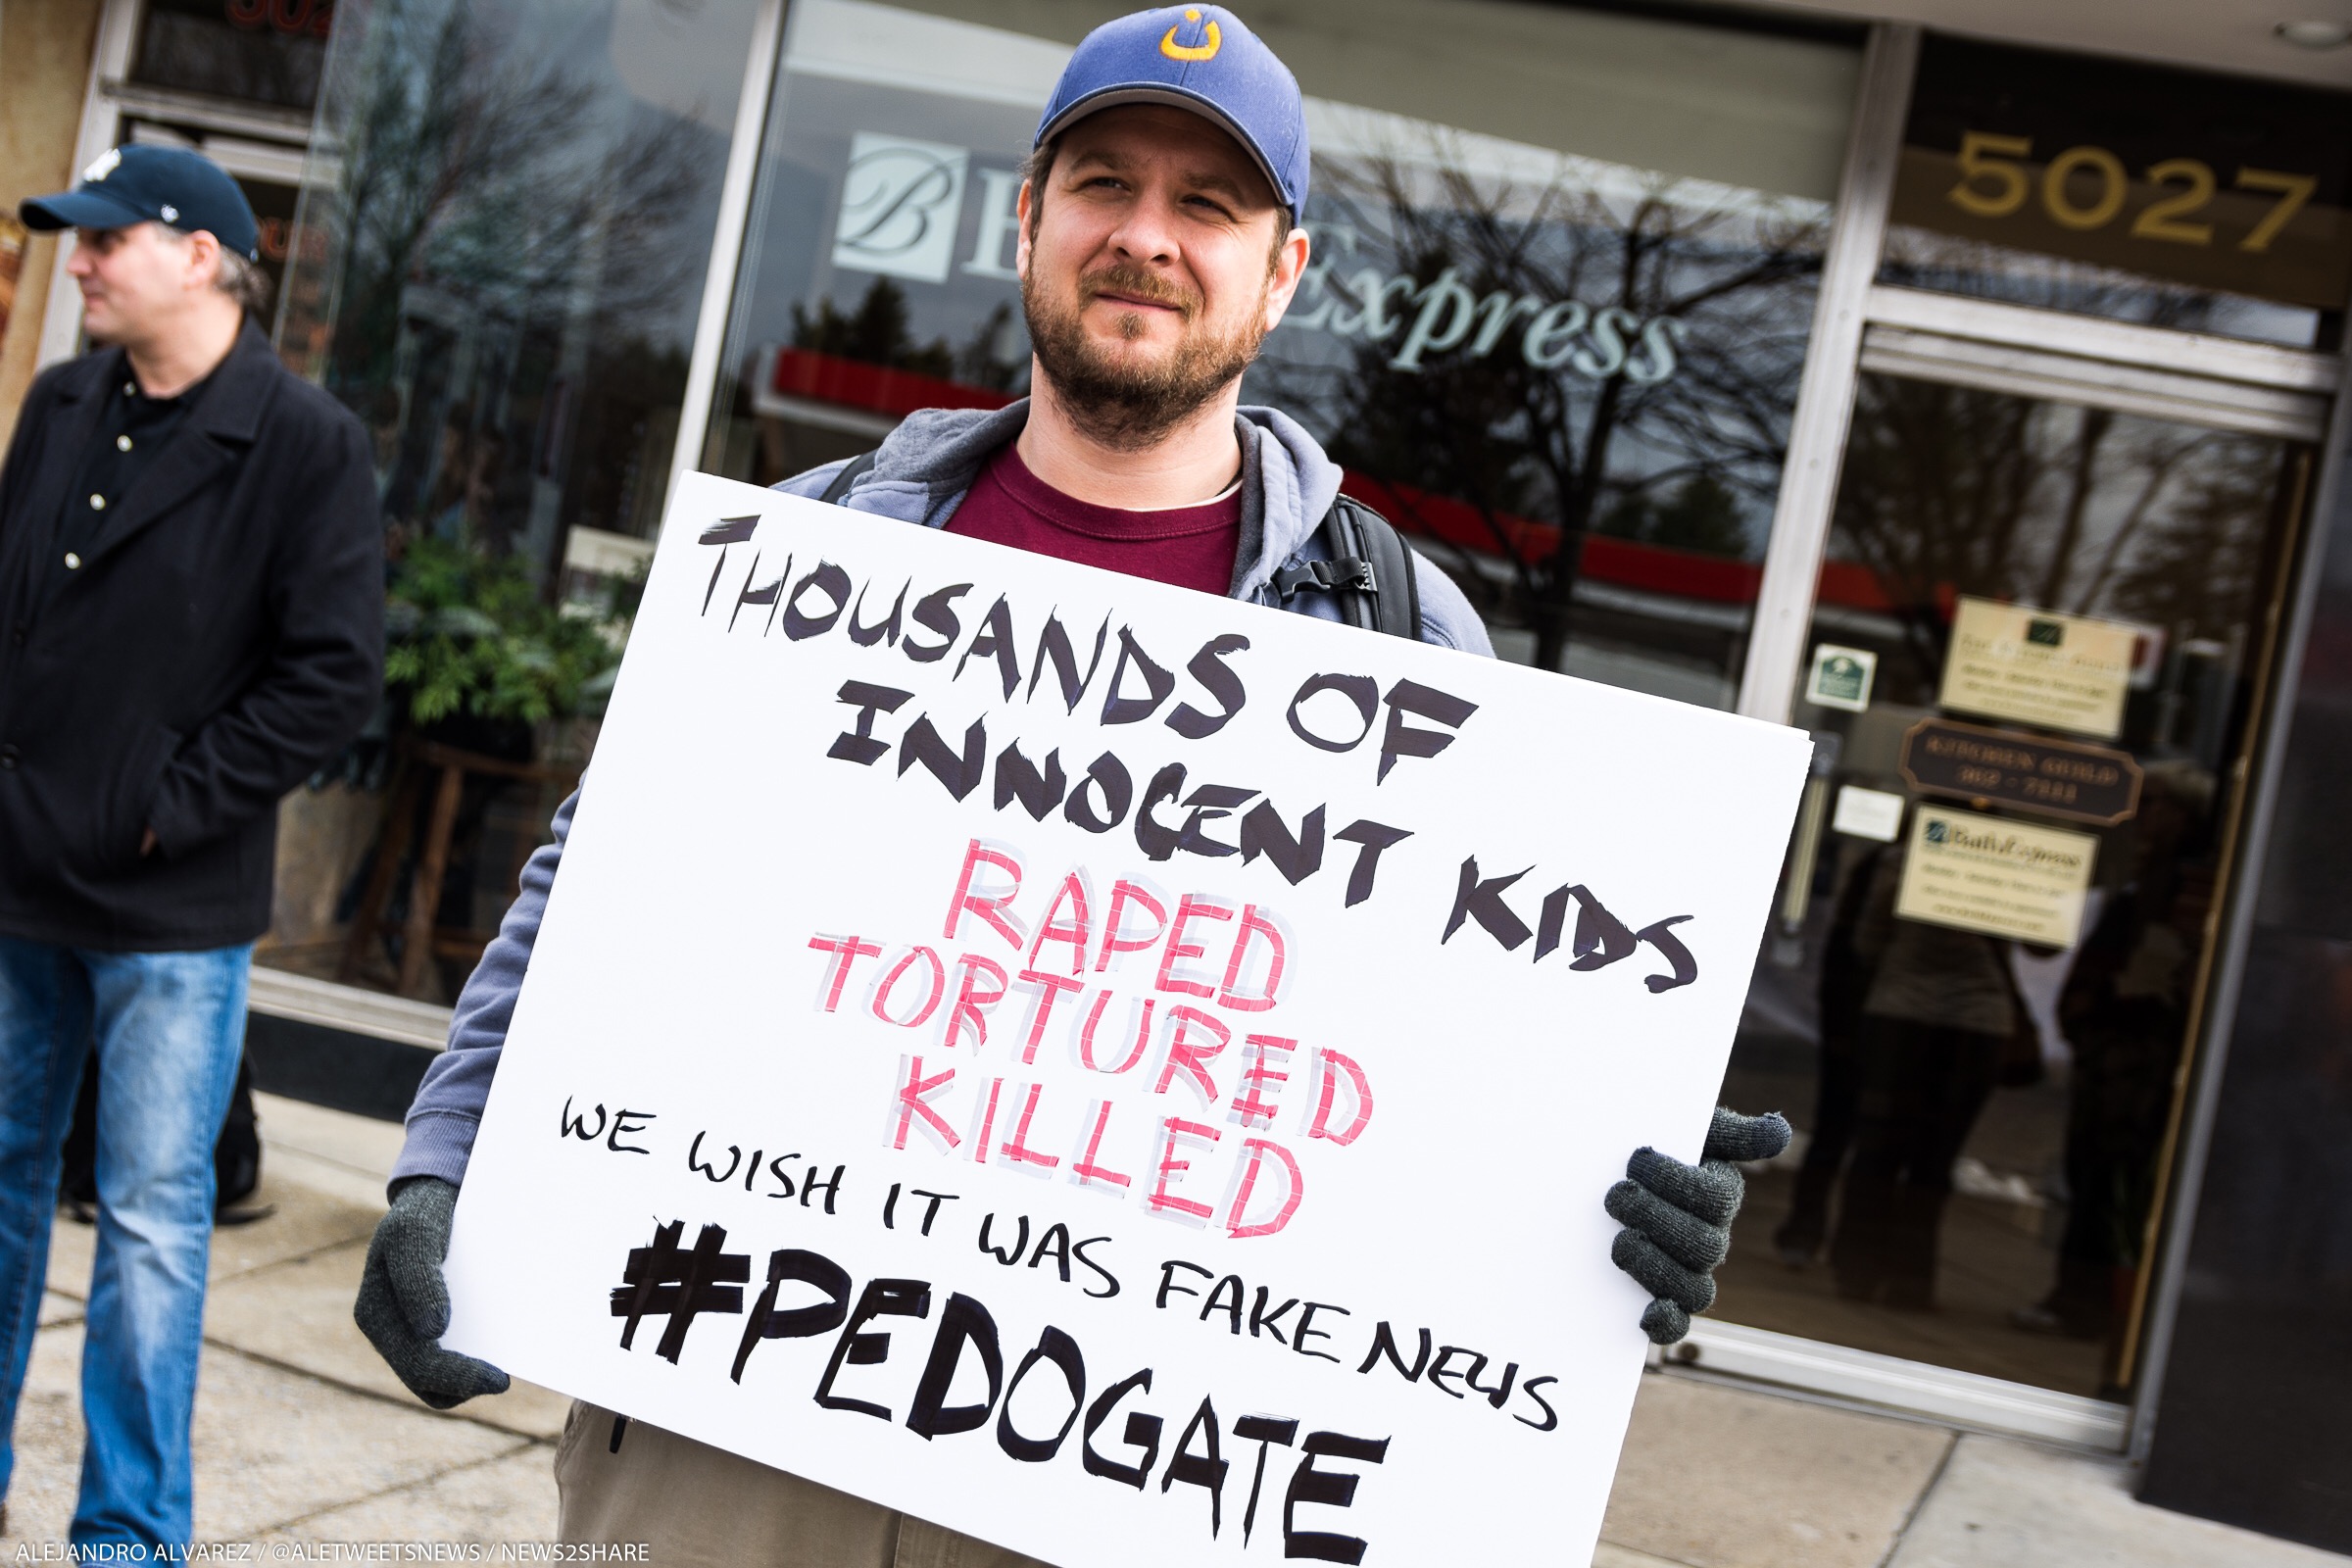 ن
5027
B
Express
THOUSANDS OF
INNOCENT KIDS
RAPED
TORTURED
KILLED
WE WISH IT WAS FAKE NEWS
#PEDOGATE
KITCHEN GUILD
362 - 7111
Bath Express
ALEJANDRO ALVAREZ / @ALETWEETSNEWS / NEWS2SHARE